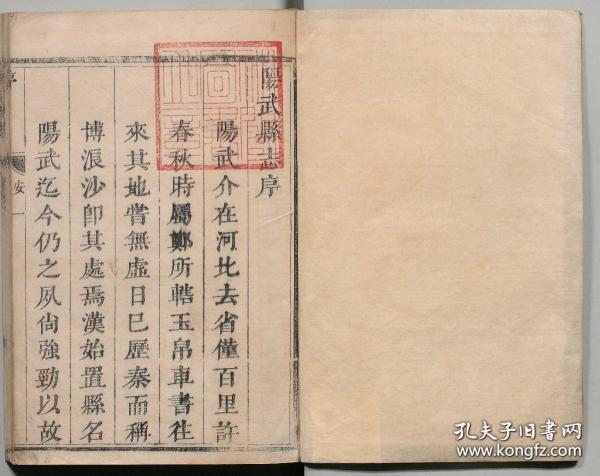 陽武縣志序
陽武介在河北去省僅百里許
春秋時屬鄭所轄玉帛車書往
來其地嘗無虛日已歷秦而稱
博浪沙卽其處焉漢始置縣名
陽武迄今仍之夙尙強勁以故
序
安 一
孔夫子旧书网
www.kongfz.com